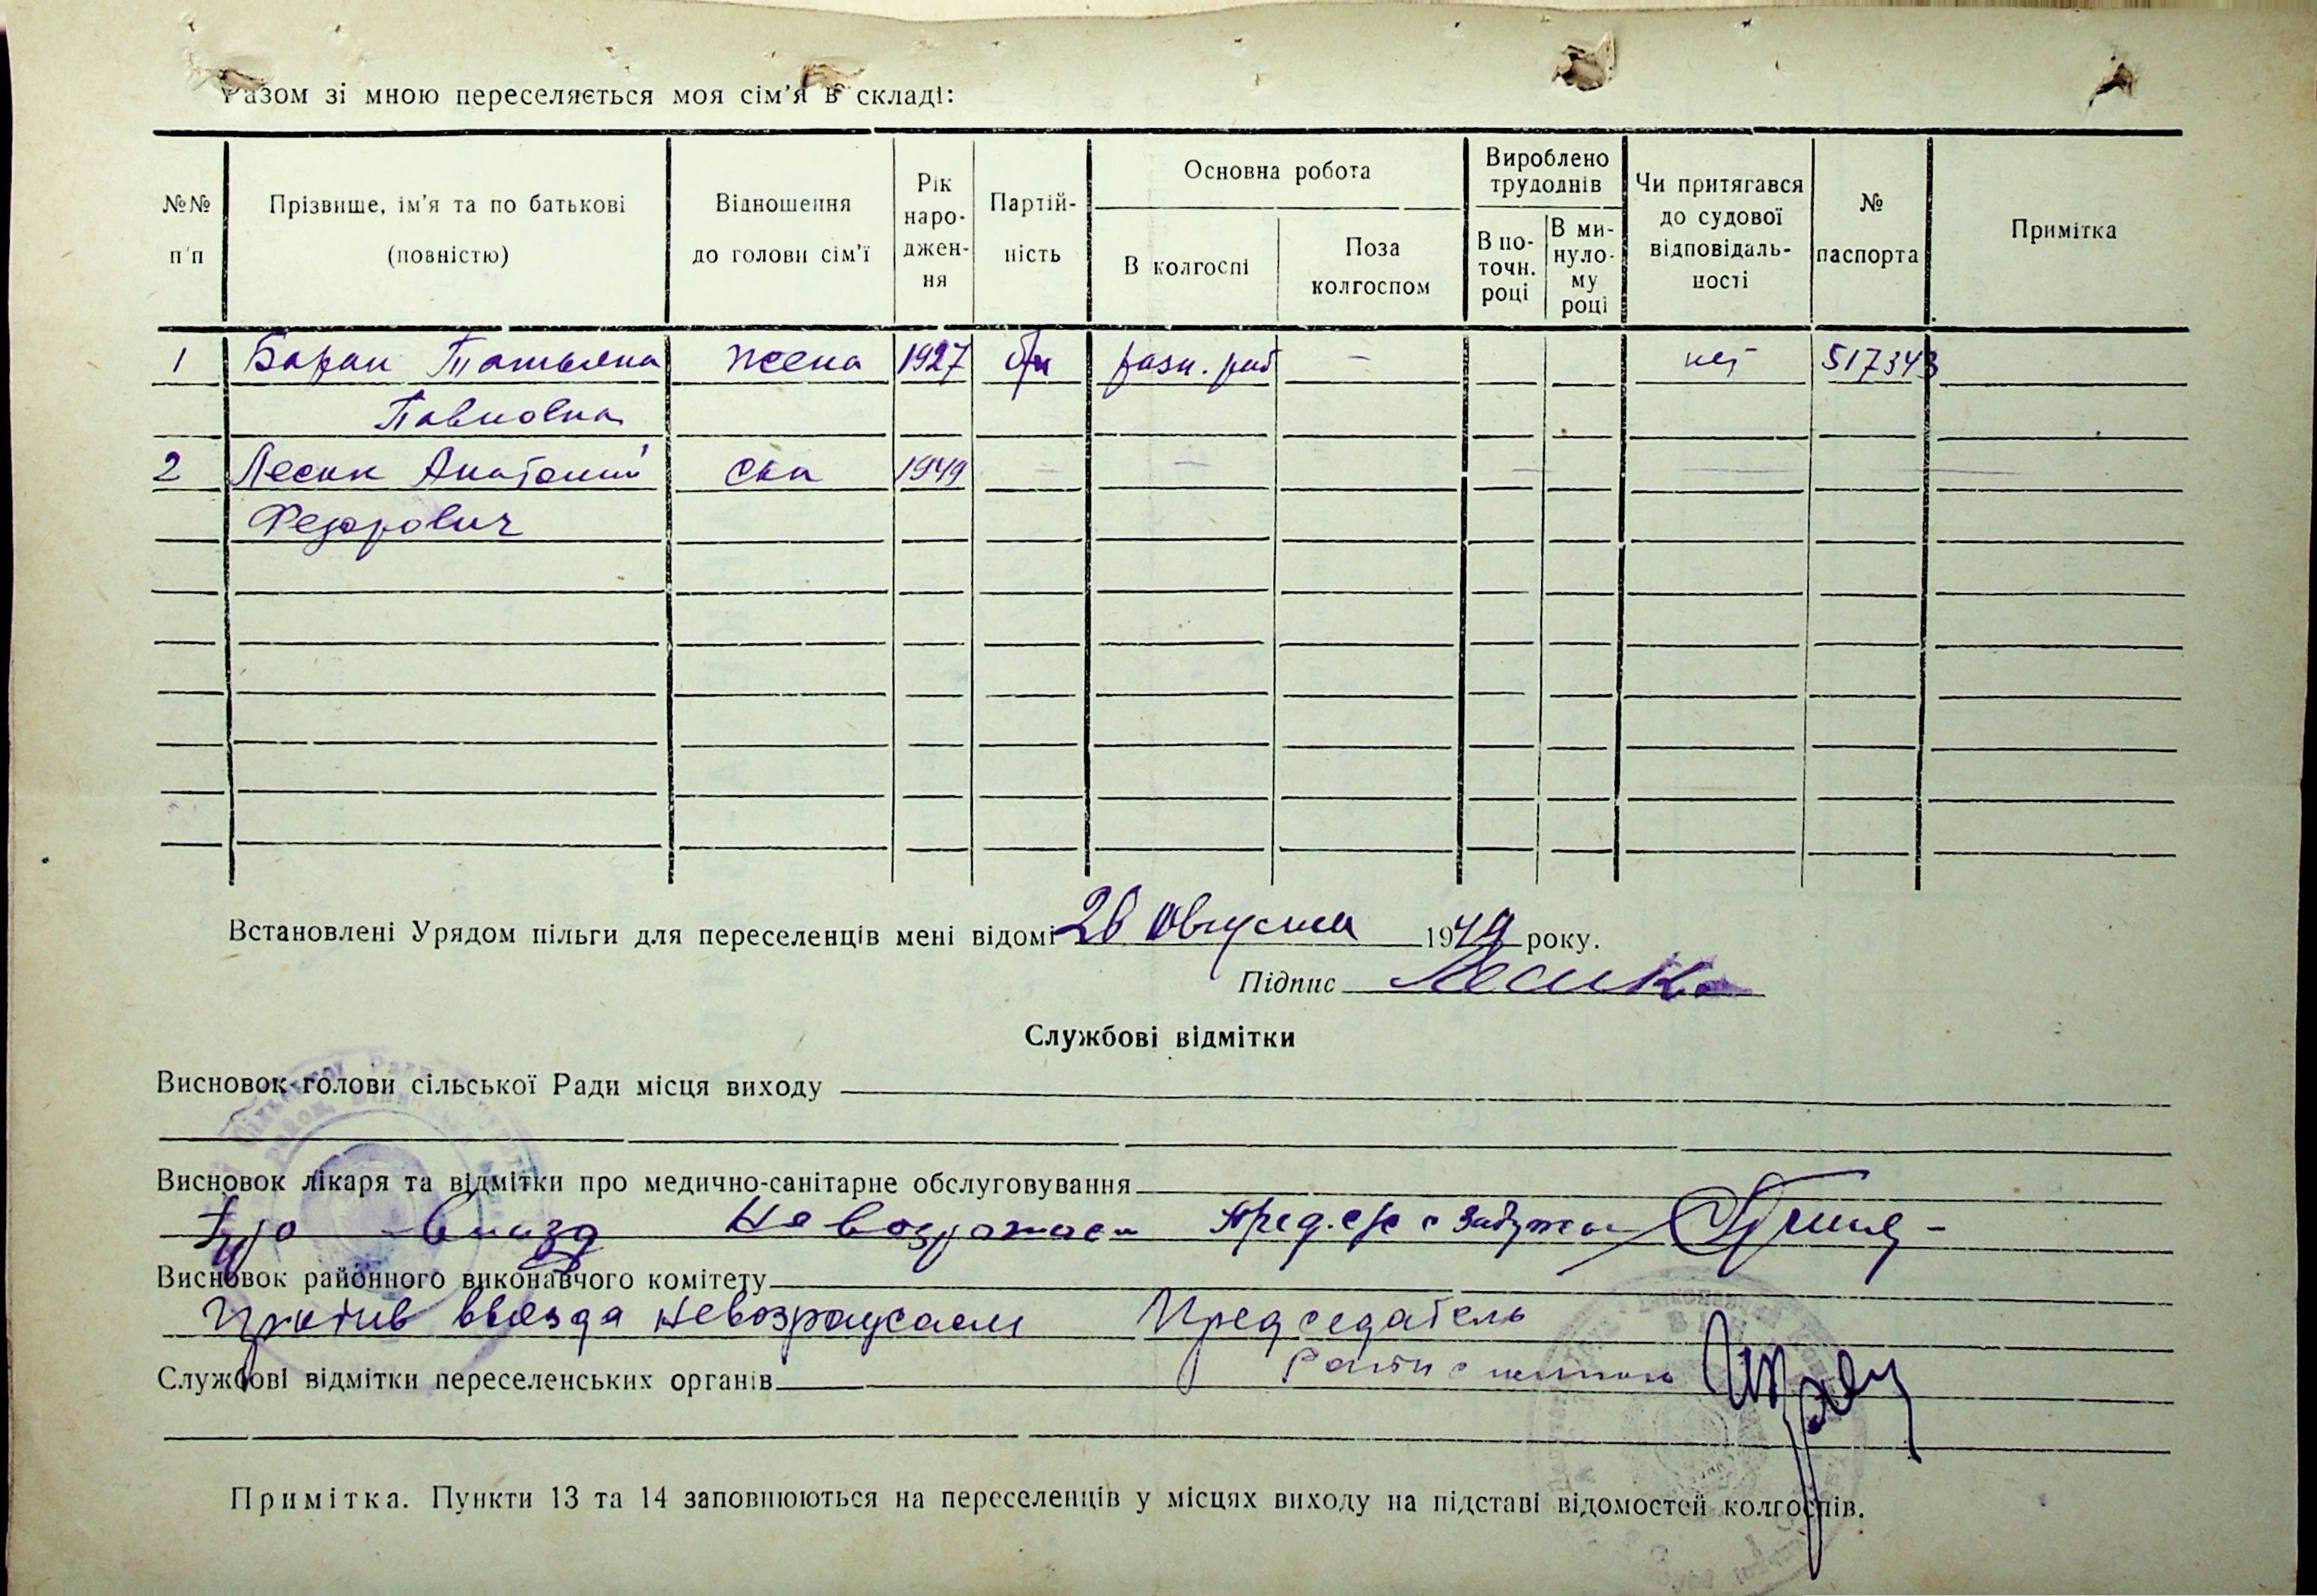 Разом зі мною переселяється моя сім'я в складі:
№№ п'п
Прізвище, ім'я та по батькові (повністю)
Відношення до голови сім'ї
Рік народження
Партійність
Основна робота
В колгоспі
Поза колгоспом
Вироблено трудоднів
В поточн. році
В минулому році
Чи притягався до судової відповідальності
№ паспорта
Примітка
1 Баран Татьяна жена 1927 б/п разн. раб – нет 517343
Павловна
2 Лесик Анатолий сын 1949 – – – –
Федорович
Встановлені Урядом пільги для переселенців мені відомі 26 августа 1949 року.
Підпис Лесик
Службові відмітки
Висновок голови сільської Ради місця виходу
Висновок лікаря та відмітки про медично-санітарне обслуговування
Невозражаем Пред. с/с
Висновок районного виконавчого комітету
Против выезда невозражаем Председатель
Службові відмітки переселенських органів
Примітка. Пункти 13 та 14 заповнюються на переселенців у місцях виходу на підставі відомостей колгоспів.